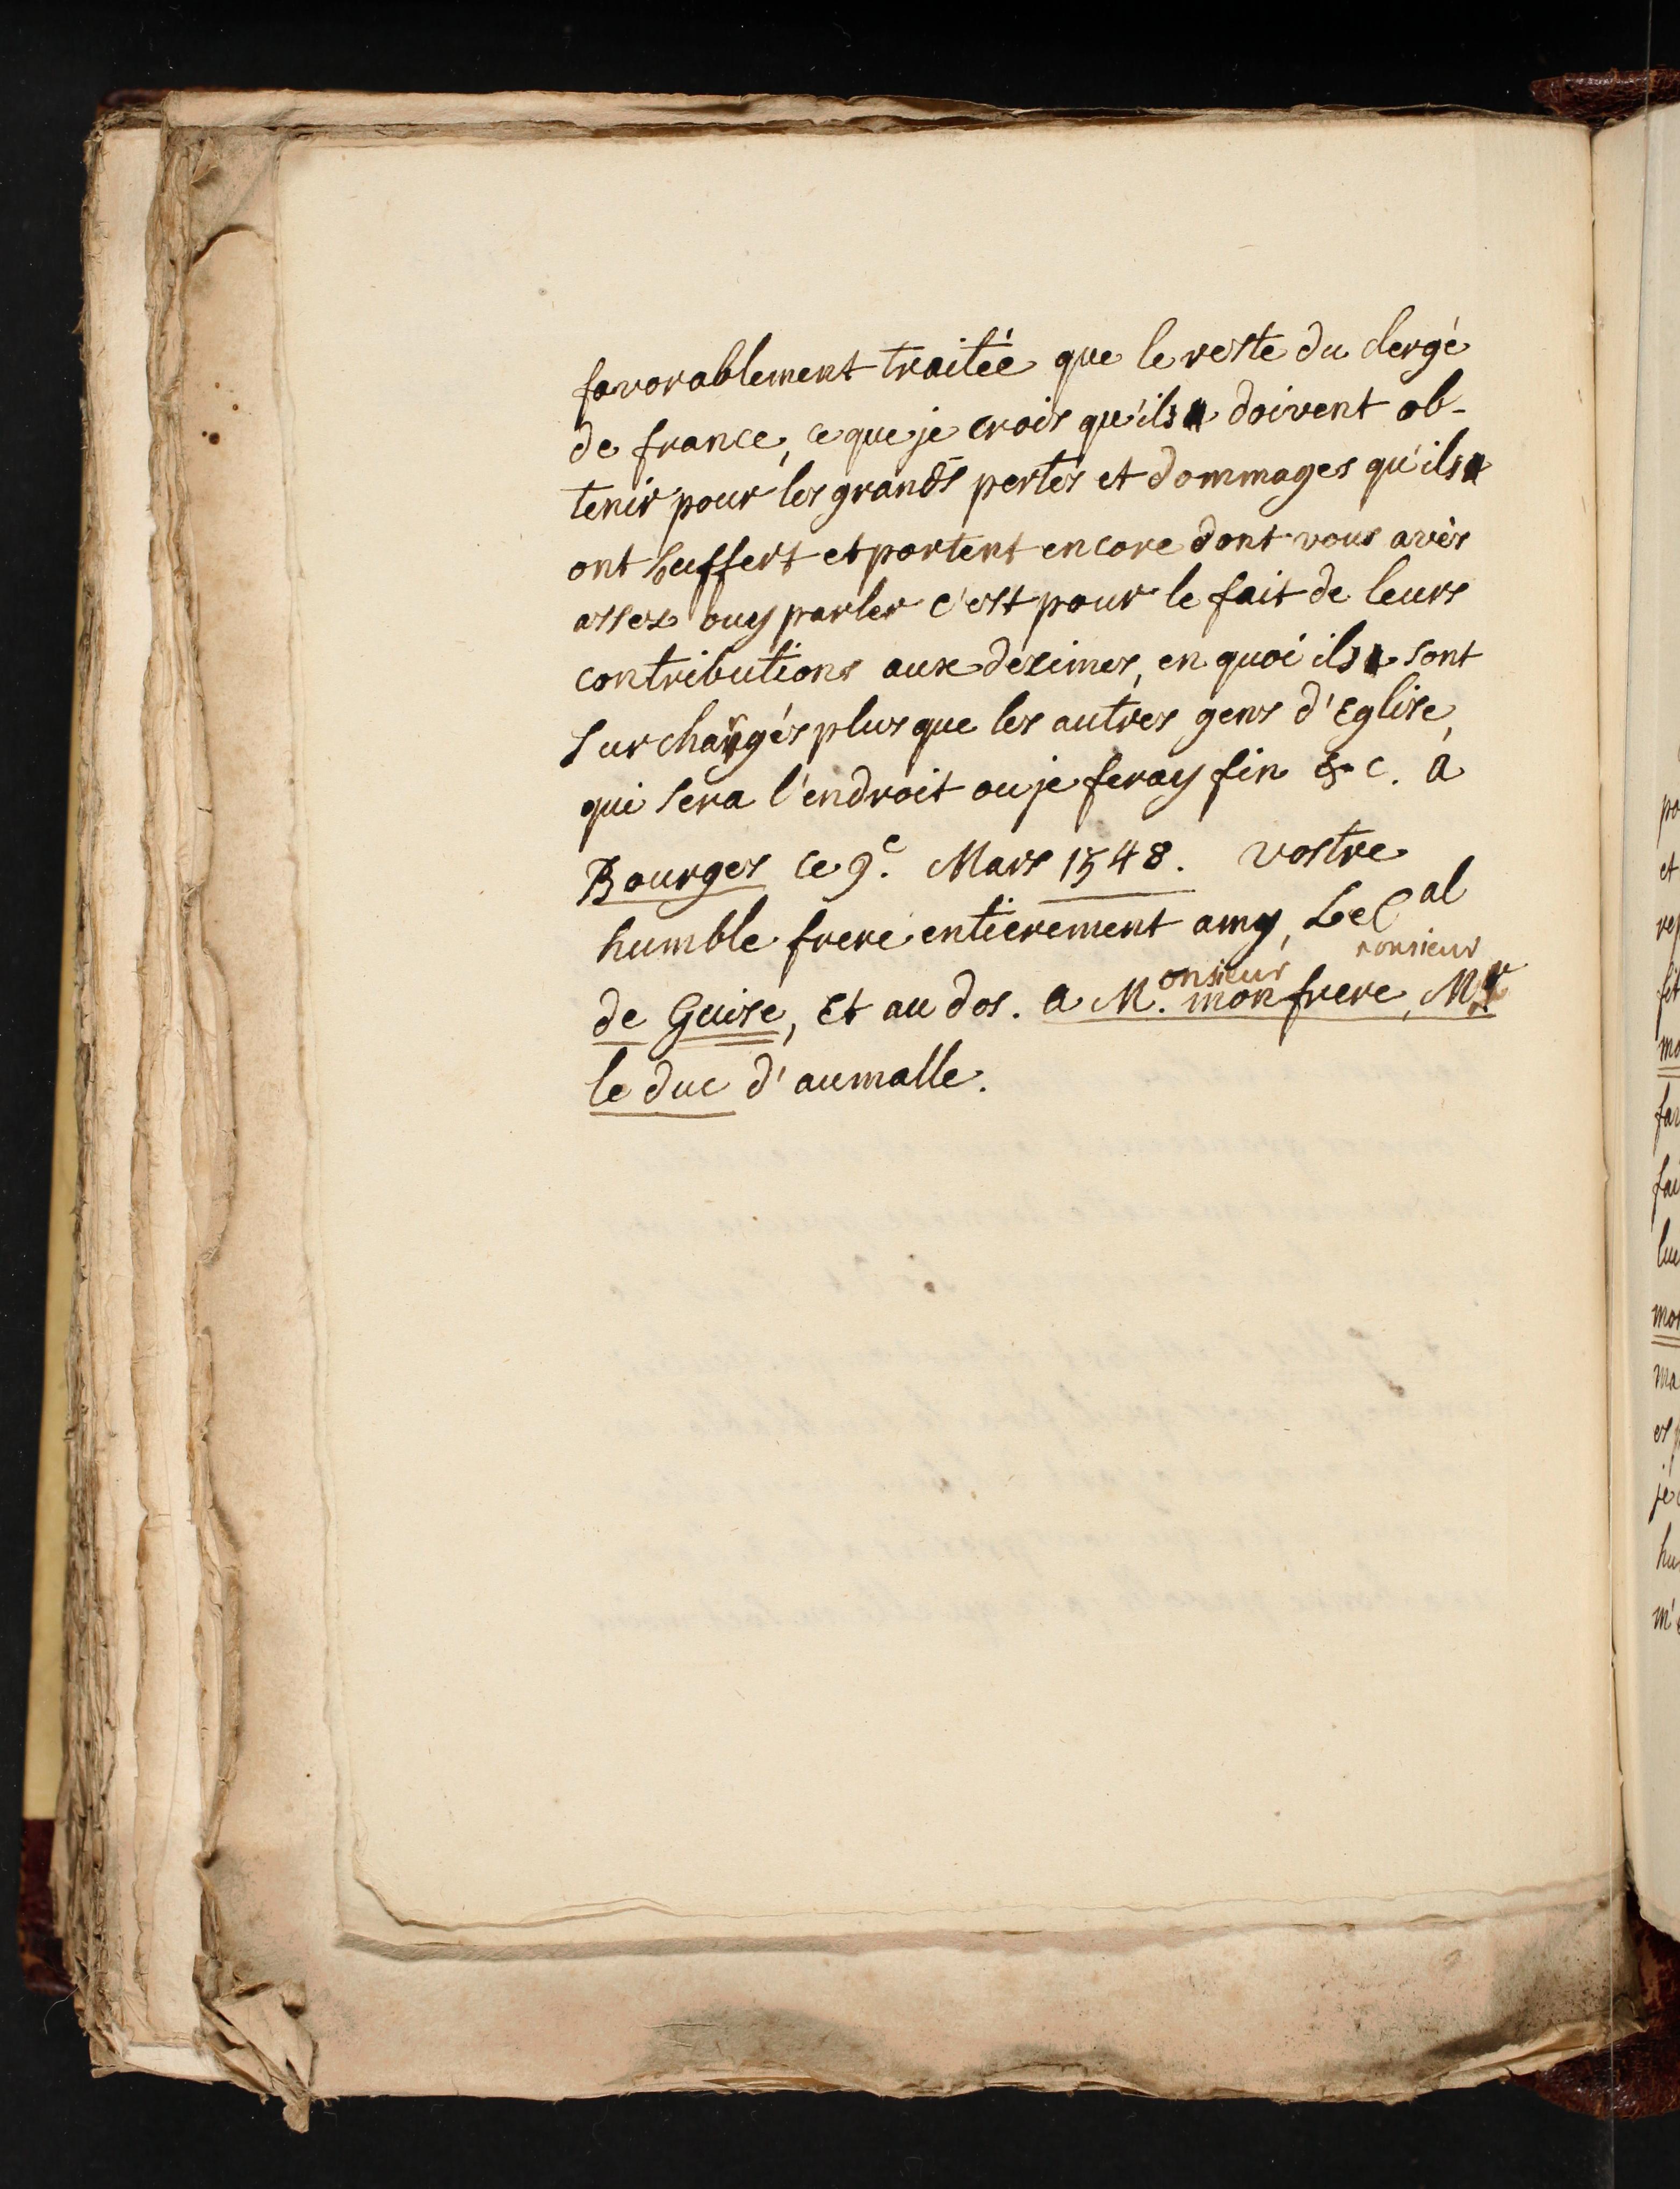 favorablement traitée que le reste du clergé
de france, ce que je crois qu'ils doivent ob-
tenir pour les grands pertes et dommages qu'ils
ont suffert et portent encore dont vous avés
asses ouy parler c'est pour le fait de leurs
contributions aux dezimes, en quoi ils sont
surchargés plus que les autres gens d'Eglise,
qui sera l'endroit ou je feray fin &c. a
Bourges ce 9e. Mars 1548. vostre
humble frere entierement amy, Le Cal
de Guise, Et au dos. a Monsieur. mon frere, Monsieur
le duc d'aumalle.